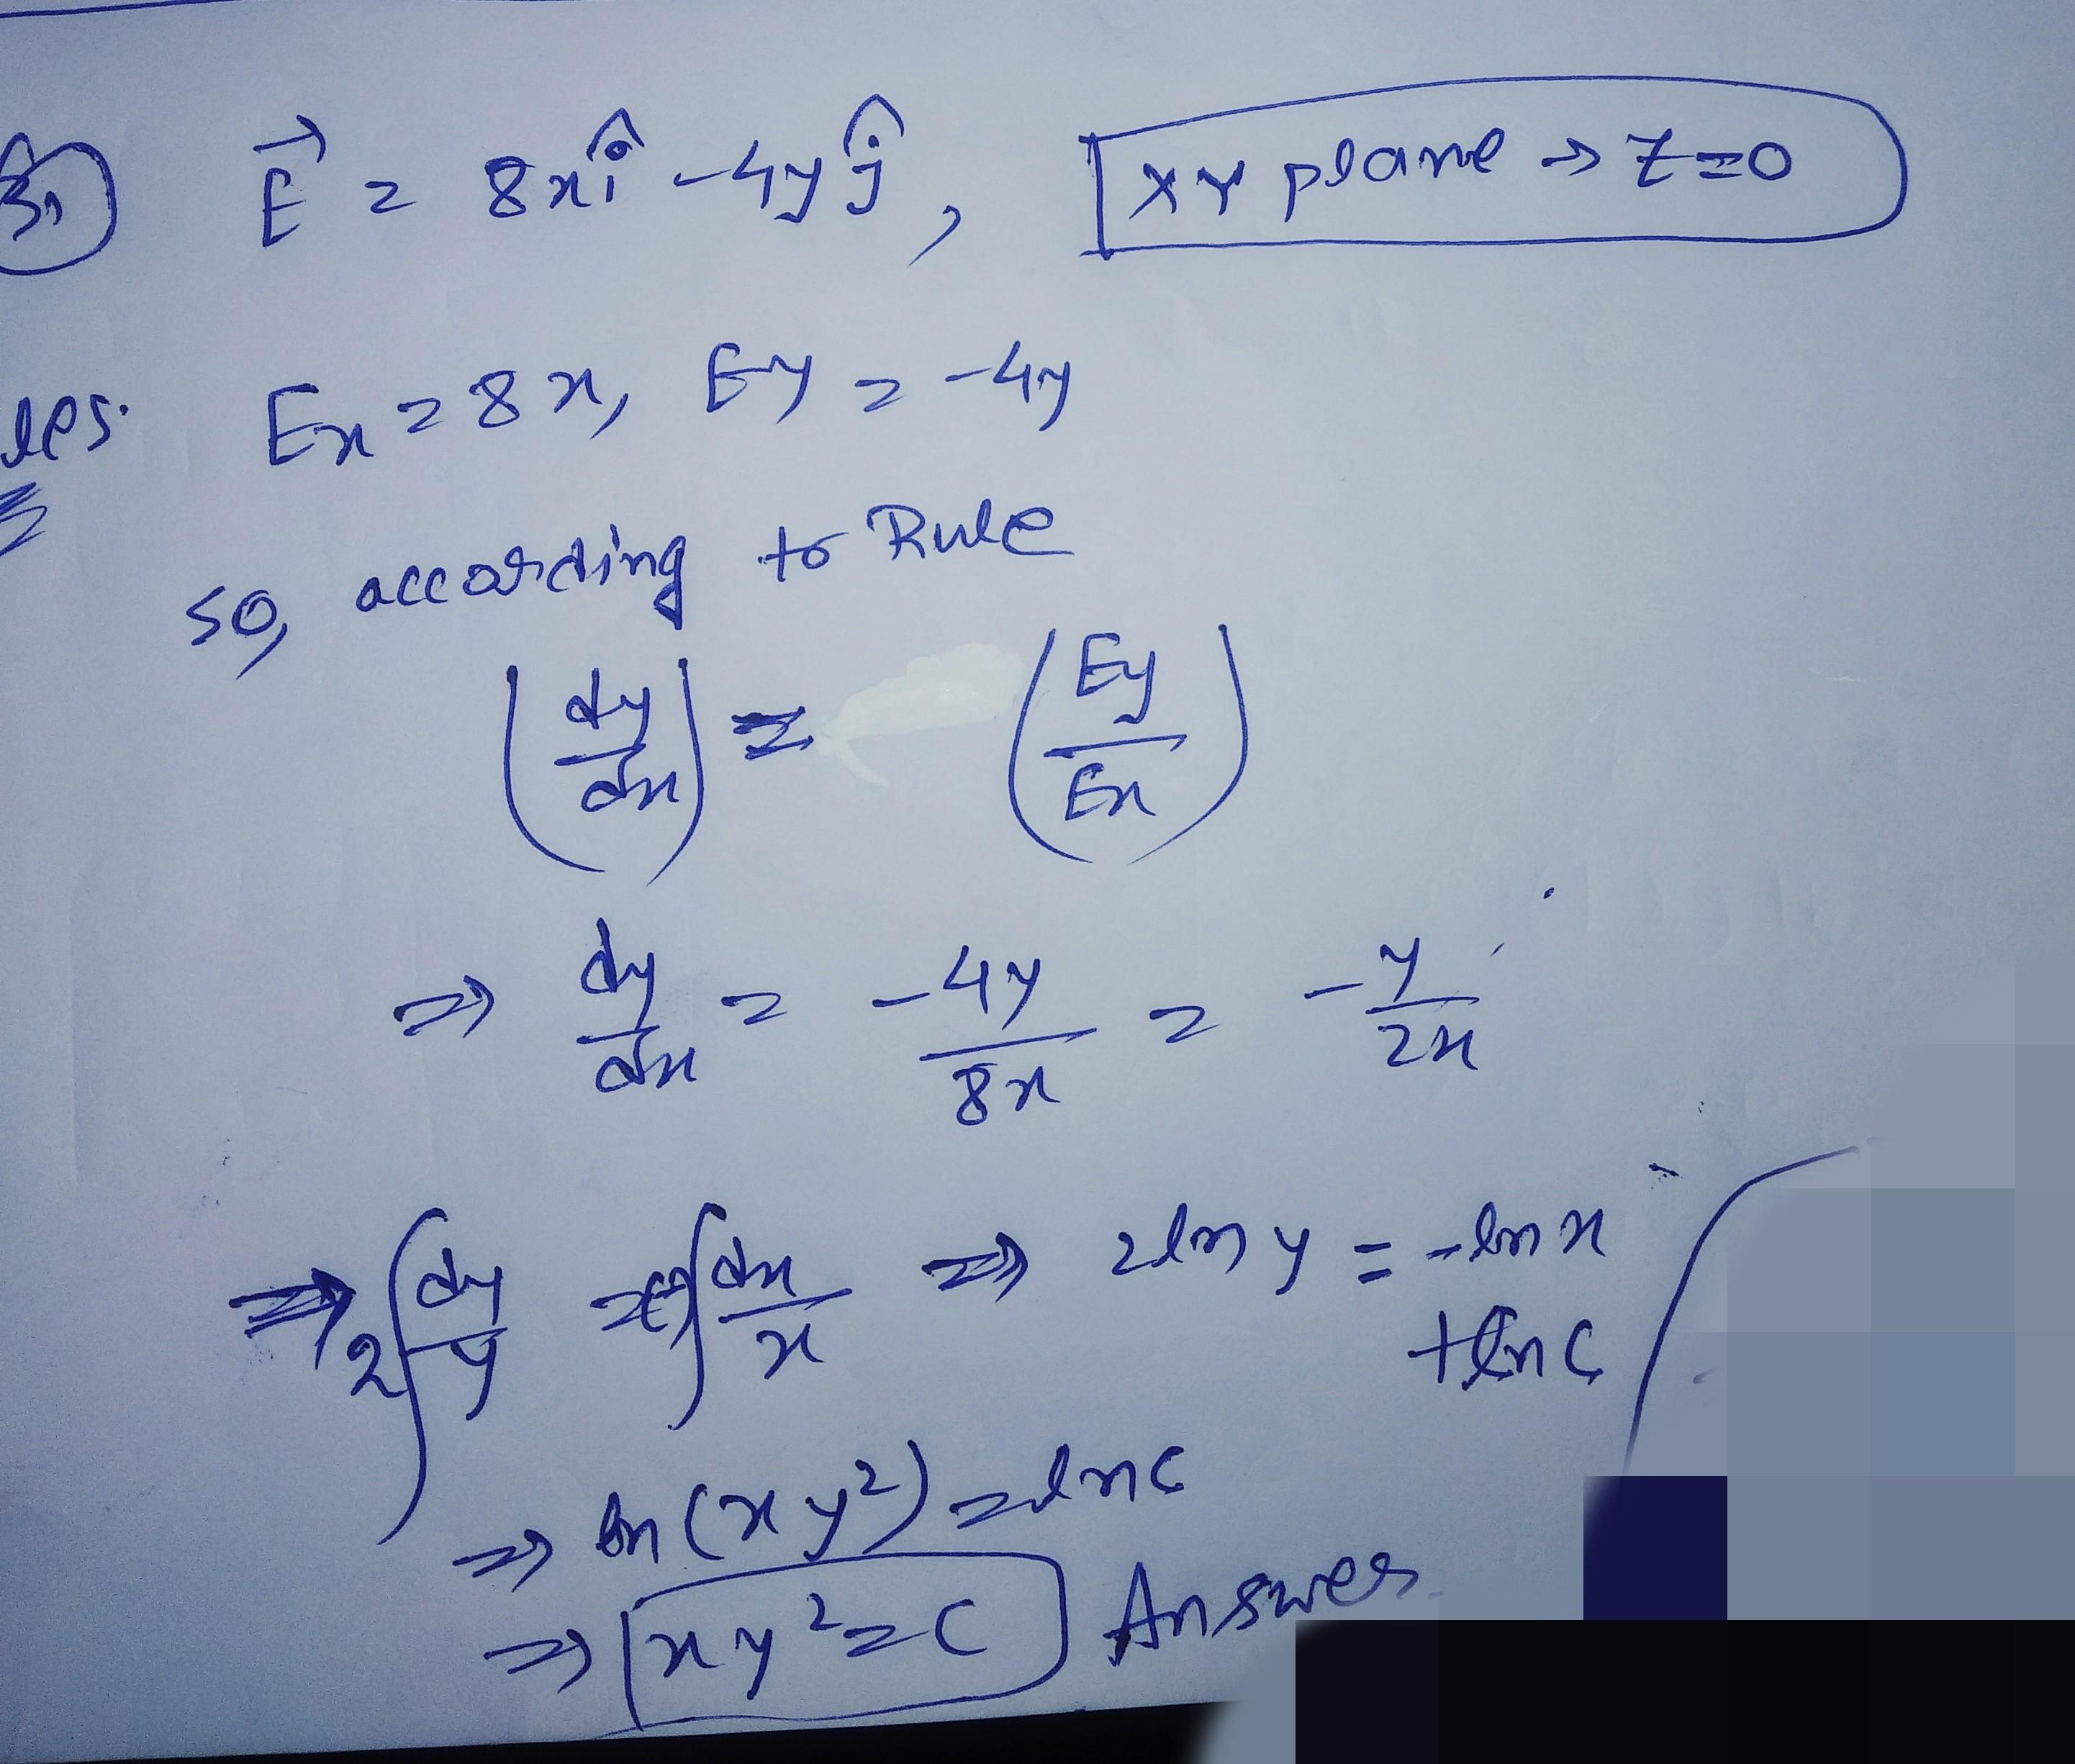 E⃗ = 8x î - 4y ĵ , XY plane → z=0
Ex = 8x, Ey = -4y
so, according to Rule
(dy/dx) = (Ey/Ex)
⇒ dy/dx = -4y/8x = -y/2x
⇒ 2∫dy/y = (-)∫dx/x ⇒ 2ln y = -ln x
+ln c
⇒ ln(xy²) = ln c
⇒ xy² = C Answer